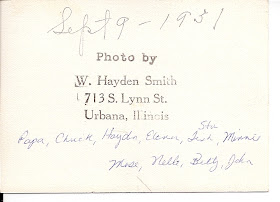 Sept 9 - 1931
Photo by
W. Hayden Smith
713 S. Lynn St.
Urbana, Illinois
Papa, Chuck, Haydn, Elenor, Minnie
Mose, Nelle, Betty, John